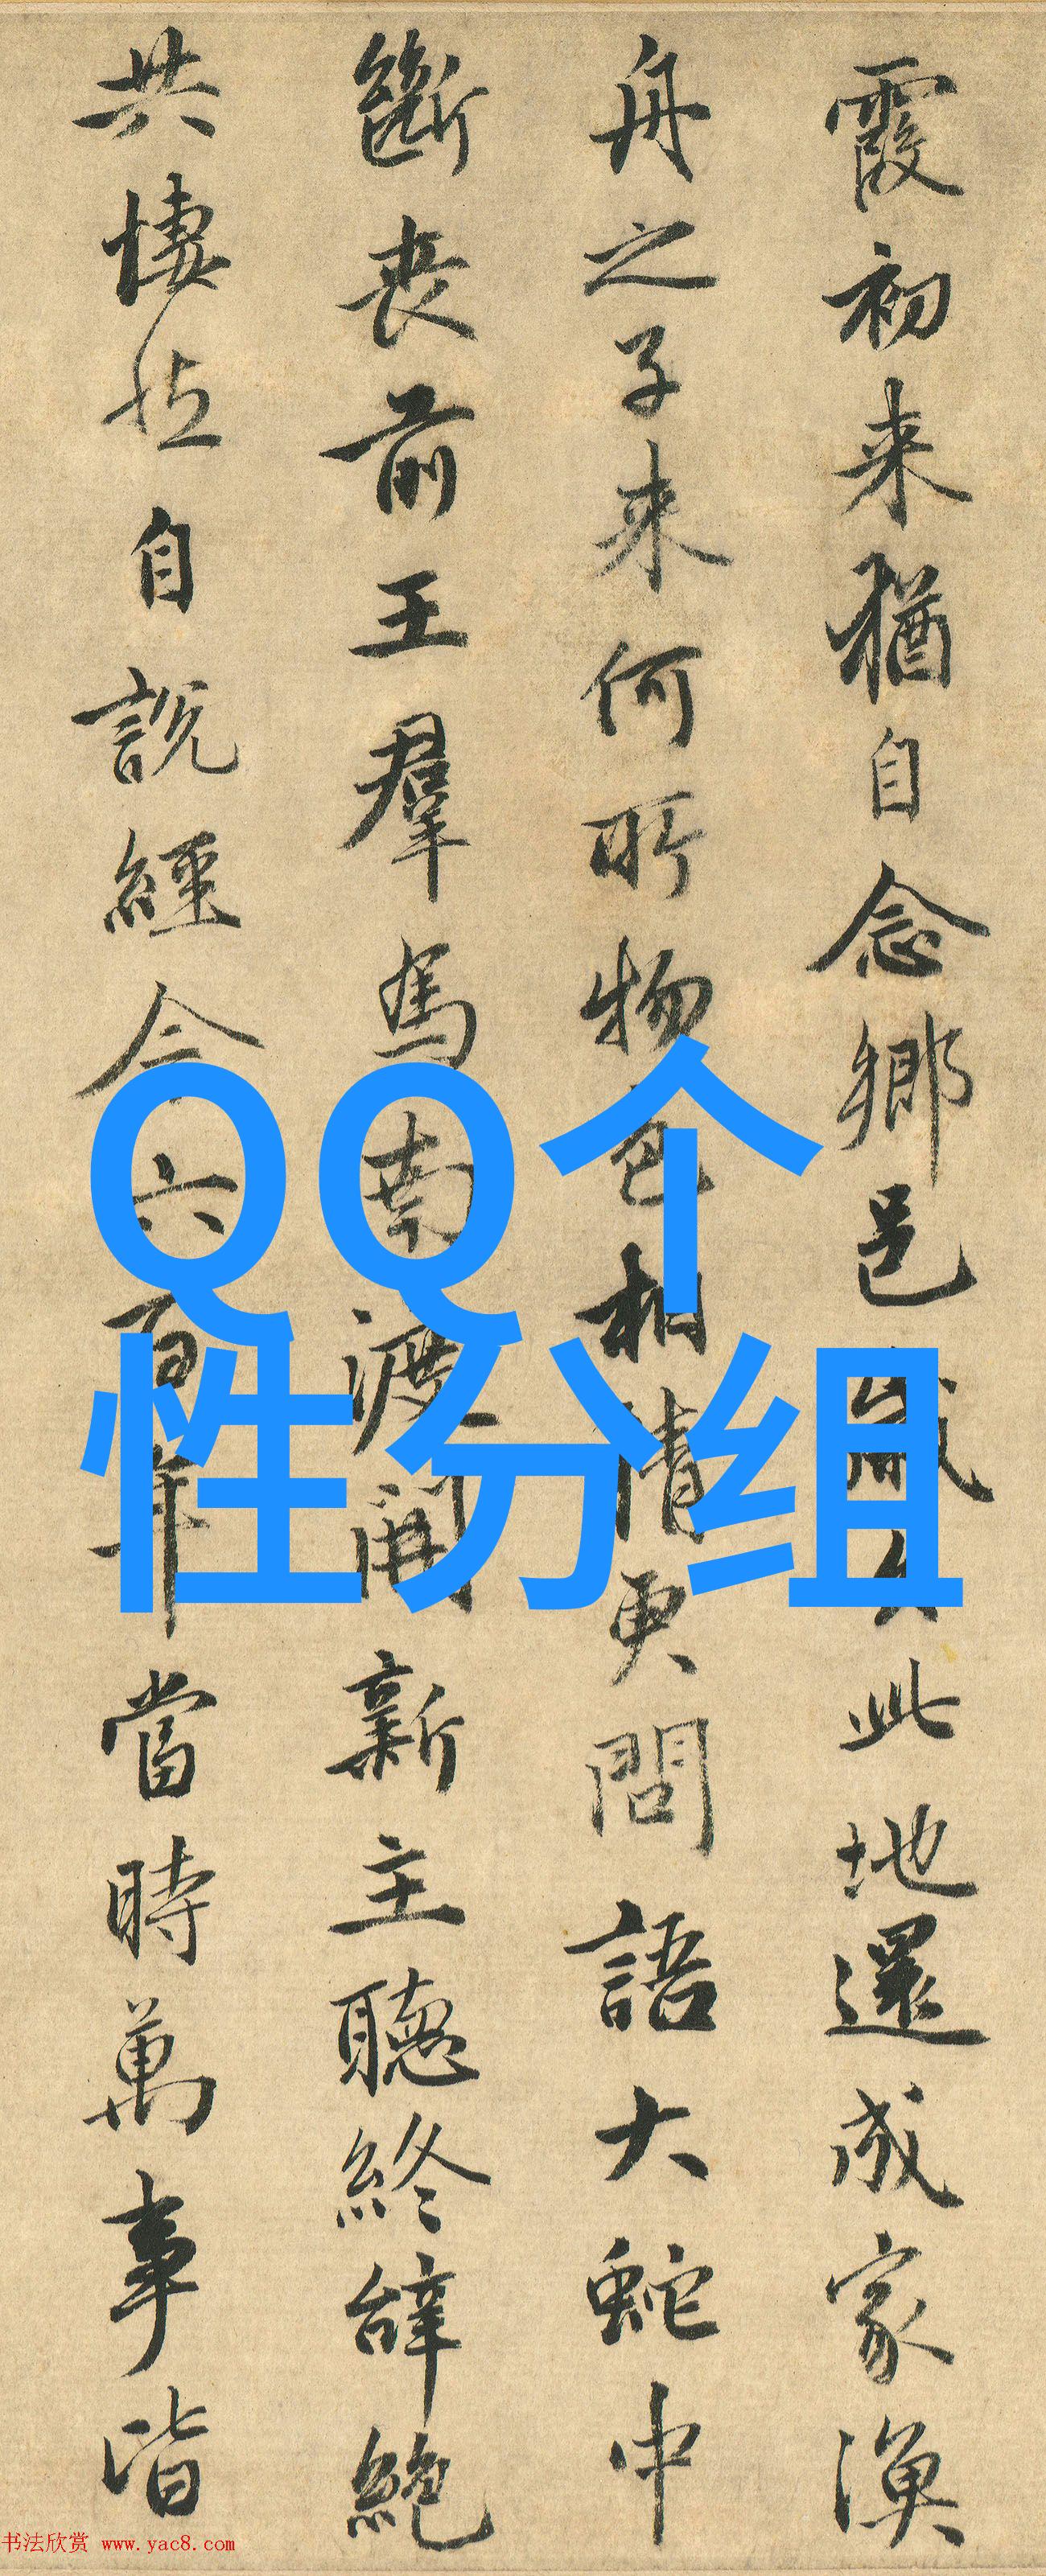 霞初来猶自念鄉邑歲久此地還成家漁
舟之子来何所物色相猜更問語大蛇中
斷喪前王羣馬南渡開新主聽終辭絕
共悽然自說經今六百年當時萬事皆
QQ个
性分组
书法欣赏 www.yac8.com